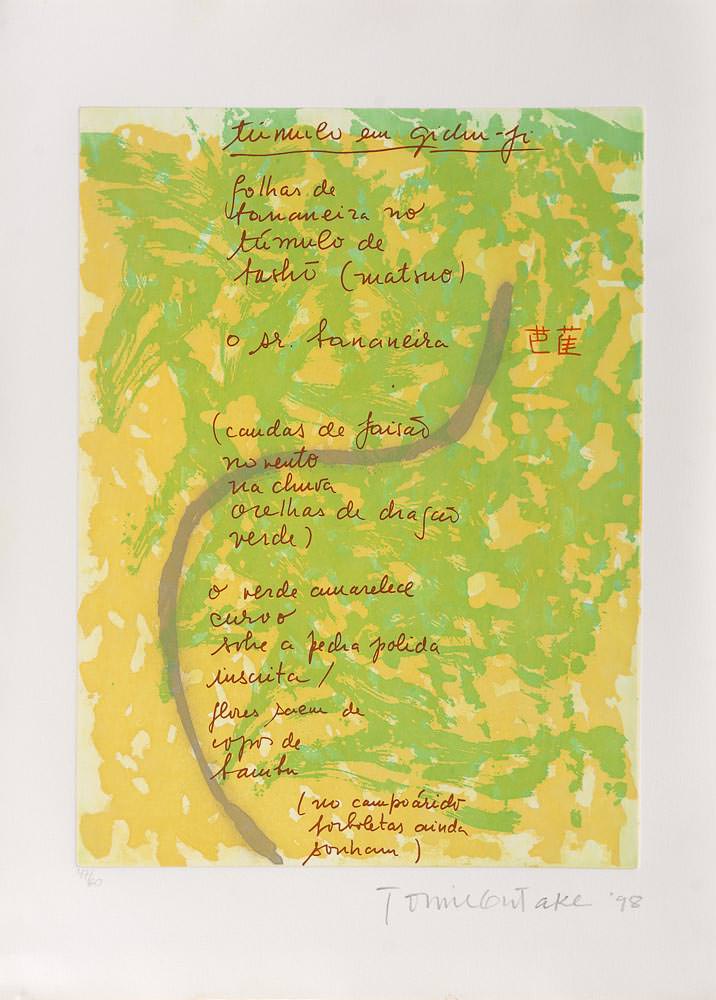 túmulo em gichu-ji
folhas de
bananeira no
túmulo de
bashō (matsuo)
o sr. bananeira
芭蕉
(caudas de faisão
no vento
na chuva
orelhas de dragão
verde)
o verde amarelece
curvo
sobre a pedra polida
inscrita /
flores saem de
copos de
bambu
(no campoárido
borboletas ainda
sonham)
47/60
Tomie Ohtake '98